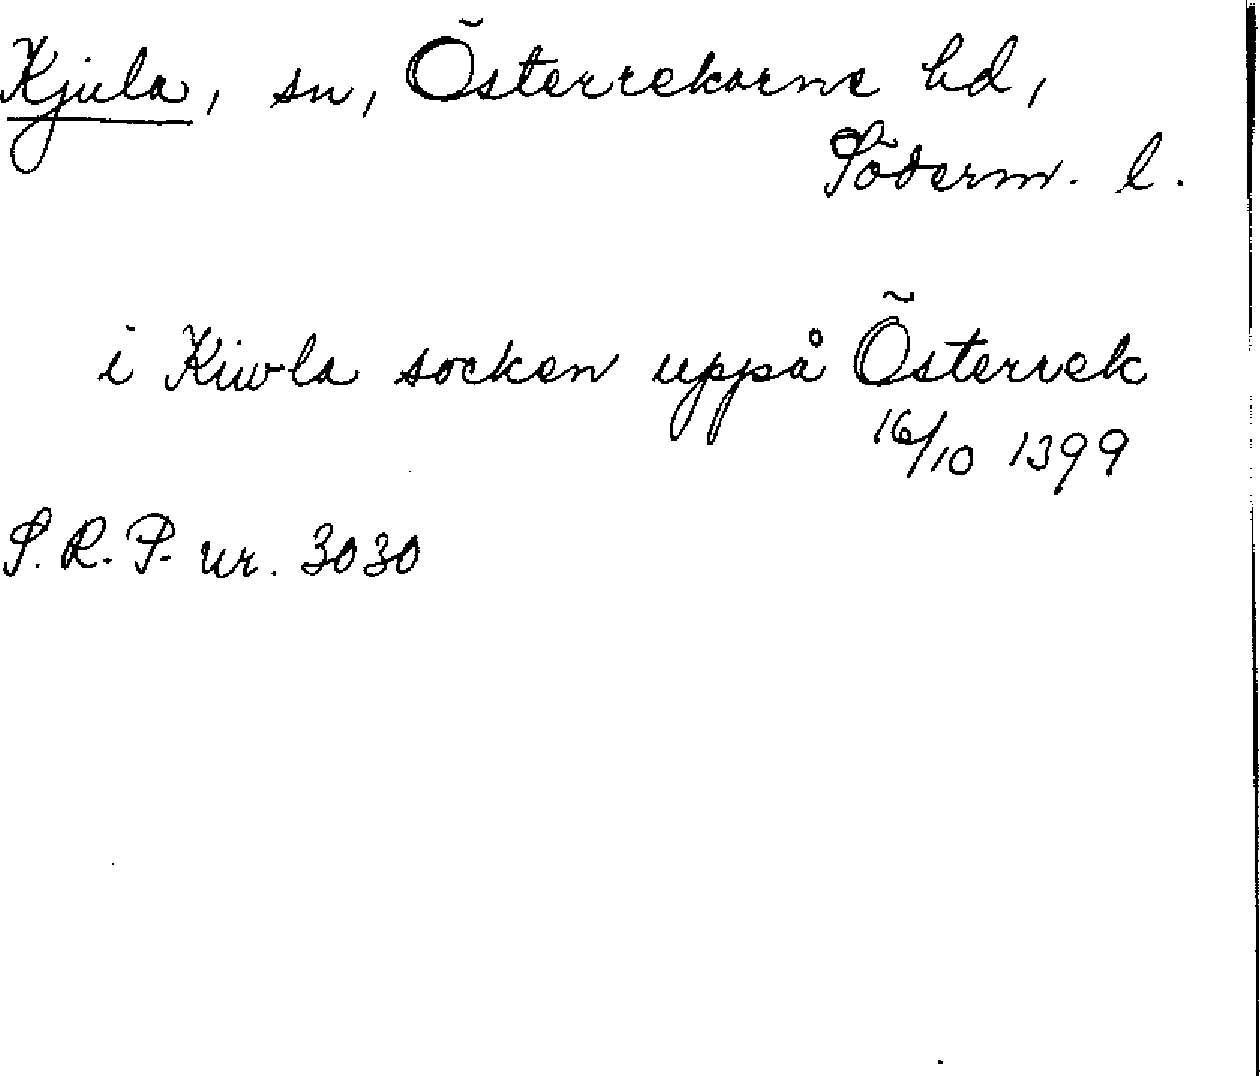 Kjula, sn, Österrekarne hd,
Söderm. l.
i Kiwla socken uppå Österrek
16/10 1399
S.R.P. nr. 3030